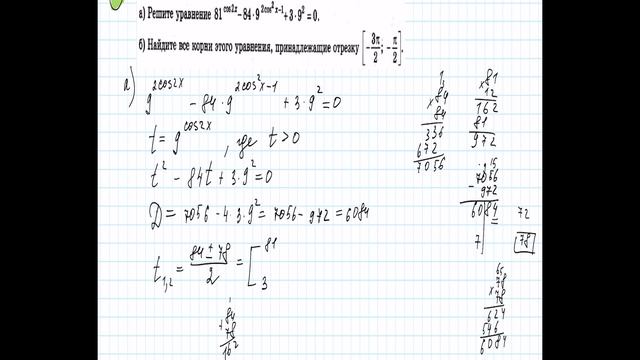 а) Решите уравнение 81^{cos2x}−84·9^{2cos²x−1}+3·9²=0.
б) Найдите все корни этого уравнения, принадлежащие отрезку [−3π/2; −π/2].
а) 9^{2cos2x} − 84·9^{2cos²x−1} + 3·9² = 0
t = 9^{cos2x}, где t>0
t² − 84t + 3·9² = 0
D = 7056 − 4·3·9² = 7056 − 972 = 6084
t₁,₂ = (84 ± 78)/2 = [ 81
3
1
84
+ 78
162
1
× 84
84
336
672
7056
× 81
12
162
81
972
15
7056
− 972
6084
72
7
78
65
× 78
78
624
546
6084